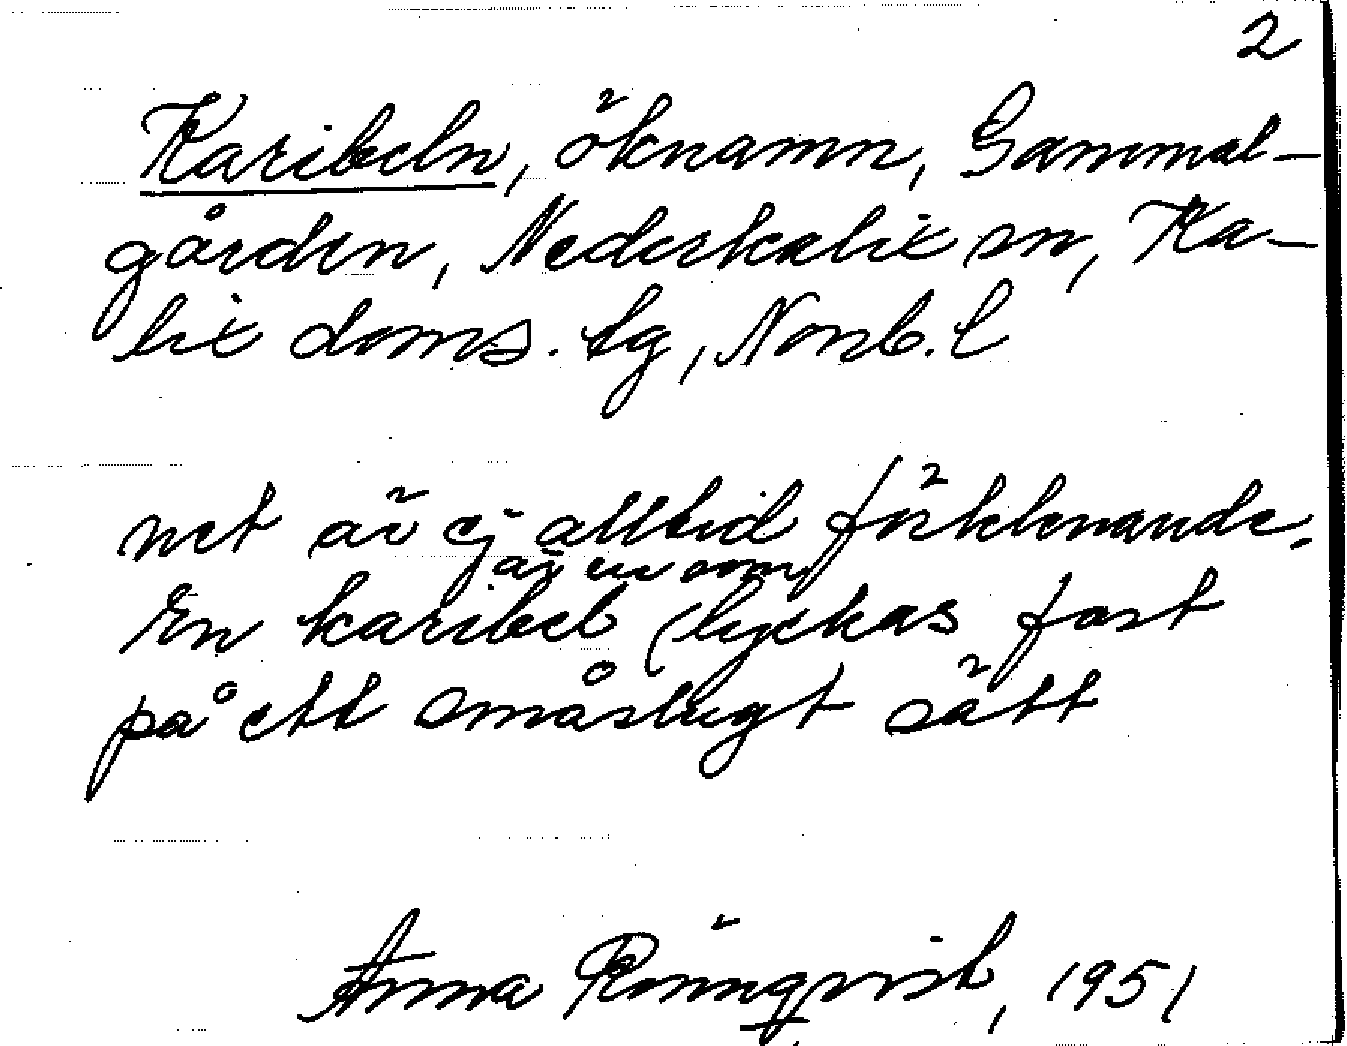 2
Karibeln, öknamn, Gammel-
gården, Nederkalix sn, Ka-
lix doms. lg, Norrb. l
net är ej alltid förklenande.
är en som
En karibel lyckas fast
på ett småslugt sätt
Anna Rönnqvist, 1951